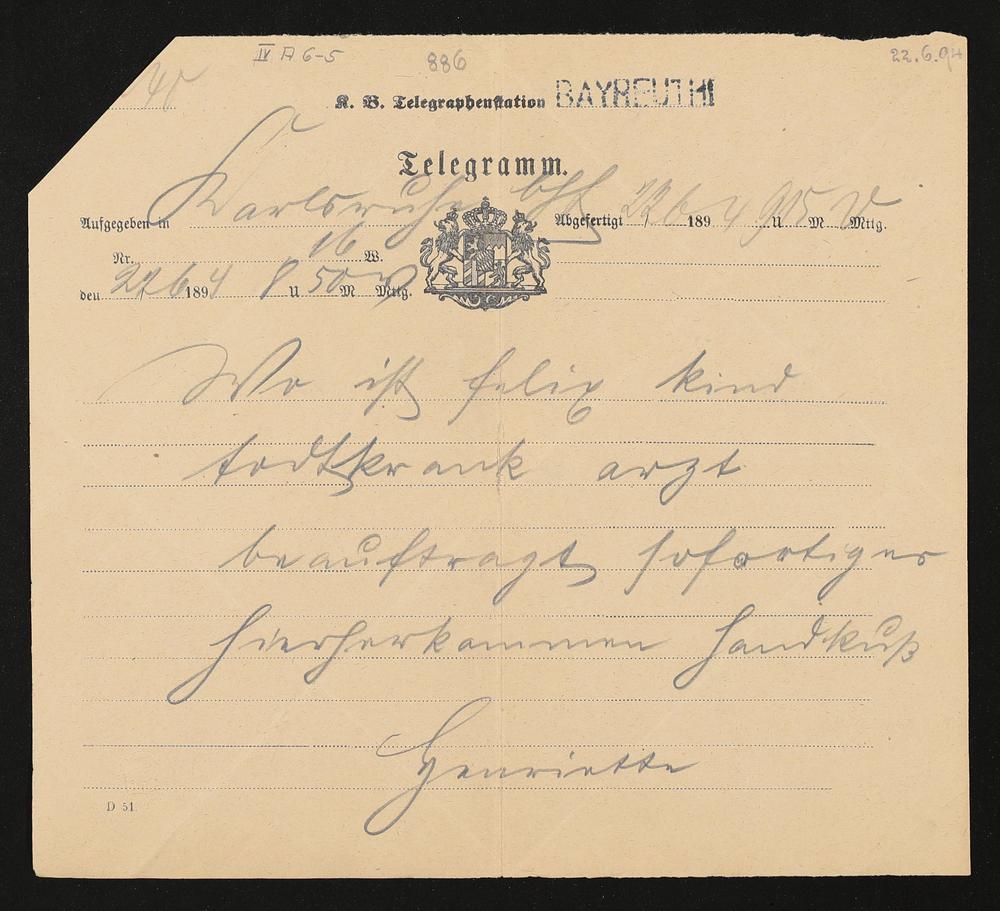 IV A 6-5
886
22.6.94
40
K. B. Telegraphenstation BAYREUTH
Telegramm.
Aufgegeben in Karlsruhe bhf
Abgefertigt 22/6 1894 915 U M V Mttg.
Nr. 16 W.
den 22/6 1894 8 U 50 M V Mttg.
Wo ist felix kind
todtkrank arzt
beauftragt sofortiges
hierherkommen handkuß
Henriette
D 51.